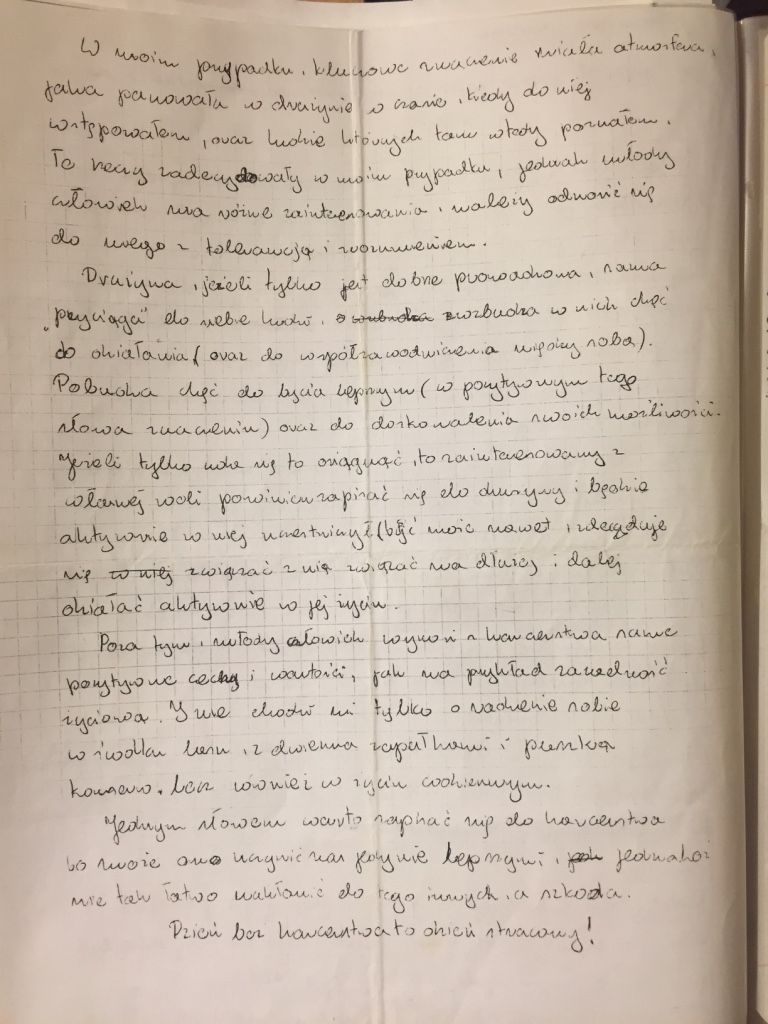 W moim przypadku, kluczowe znaczenie miała atmosfera,
jaka panowała w drużynie w czasie, kiedy do niej
wstępowałem, oraz ludzie których tam wtedy poznałem.
Te rzeczy zadecydowały w moim przypadku, jednak młody
człowiek ma różne zainteresowania, należy odnosić się
do niego z tolerancją i zrozumieniem.
Drużyna, jeżeli tylko jest dobrze prowadzona, sama
"przyciąga" do siebie ludzi, wzbudza w nich chęć
do działania (oraz do współzawodniczenia między sobą).
Pobudza chęć do bycia lepszym (w pozytywnym tego
słowa znaczeniu) oraz do doskonalenia swoich możliwości.
Jeżeli tylko uda się to osiągnąć, to zainteresowany z
własnej woli powinien zapisać się do drużyny i będzie
aktywnie w niej uczestniczył (być może nawet, zdecyduje
się w niej związać z nią związać na dłużej i dalej
działać aktywnie w jej życiu.
Poza tym, młody człowiek wynosi z harcerstwa same
pozytywne cechy i wartości, jak na przykład zaradność
życiową. I nie chodzi mi tylko o radzenie sobie
w środku lasu, z dwiema zapałkami i puszką
konserw, lecz również w życiu codziennym.
Jednym słowem warto zapisać się do harcerstwa
bo może ono uczynić nas jedynie lepszymi, jednakże
nie tak łatwo nakłonić do tego innych, a szkoda.
Dzień bez harcerstwa to dzień stracony!